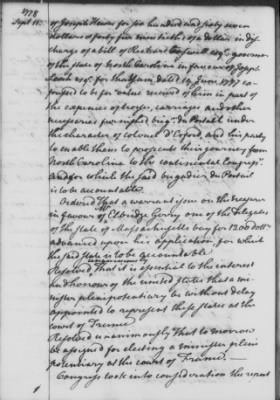 1778
Sept 10
of Joseph Hewes for six hundred and sixty seven
dollars & forty five ninetieths of a dollar in dis-
charge of a bill of Richard Caswell esqr. governor
of the state of North Carolina in favour of Joseph
esqr. for that sum dated 14 June 1777 ex-
pressed to be for value received of him in part of
the expences of troops, carriages and other
necessaries furnished brigr. du Portail under
the character of colonel Derford and his party
to enable them to prosecute their journey from
North Carolina to the continental Congress
and for which the said brigadier du Portail
is to be accountable.
Ordered That a warrant issue on the treasurer
in favour of Elbridge Gerry one of the delegates
of the State of Massachusetts bay for 1200 dollrs.
advanced upon his application, for which
the said state is to be accountable
unanimously
Resolved That it is essential to the interest
and honour of the united states that a mi-
nister plenipotentiary be without delay
appointed to represent these states at the
court of France.
Resolved unanimously That to morrow
be assigned for electing a minister pleni
potentiary at the court of France. —
Congress took into consideration the report